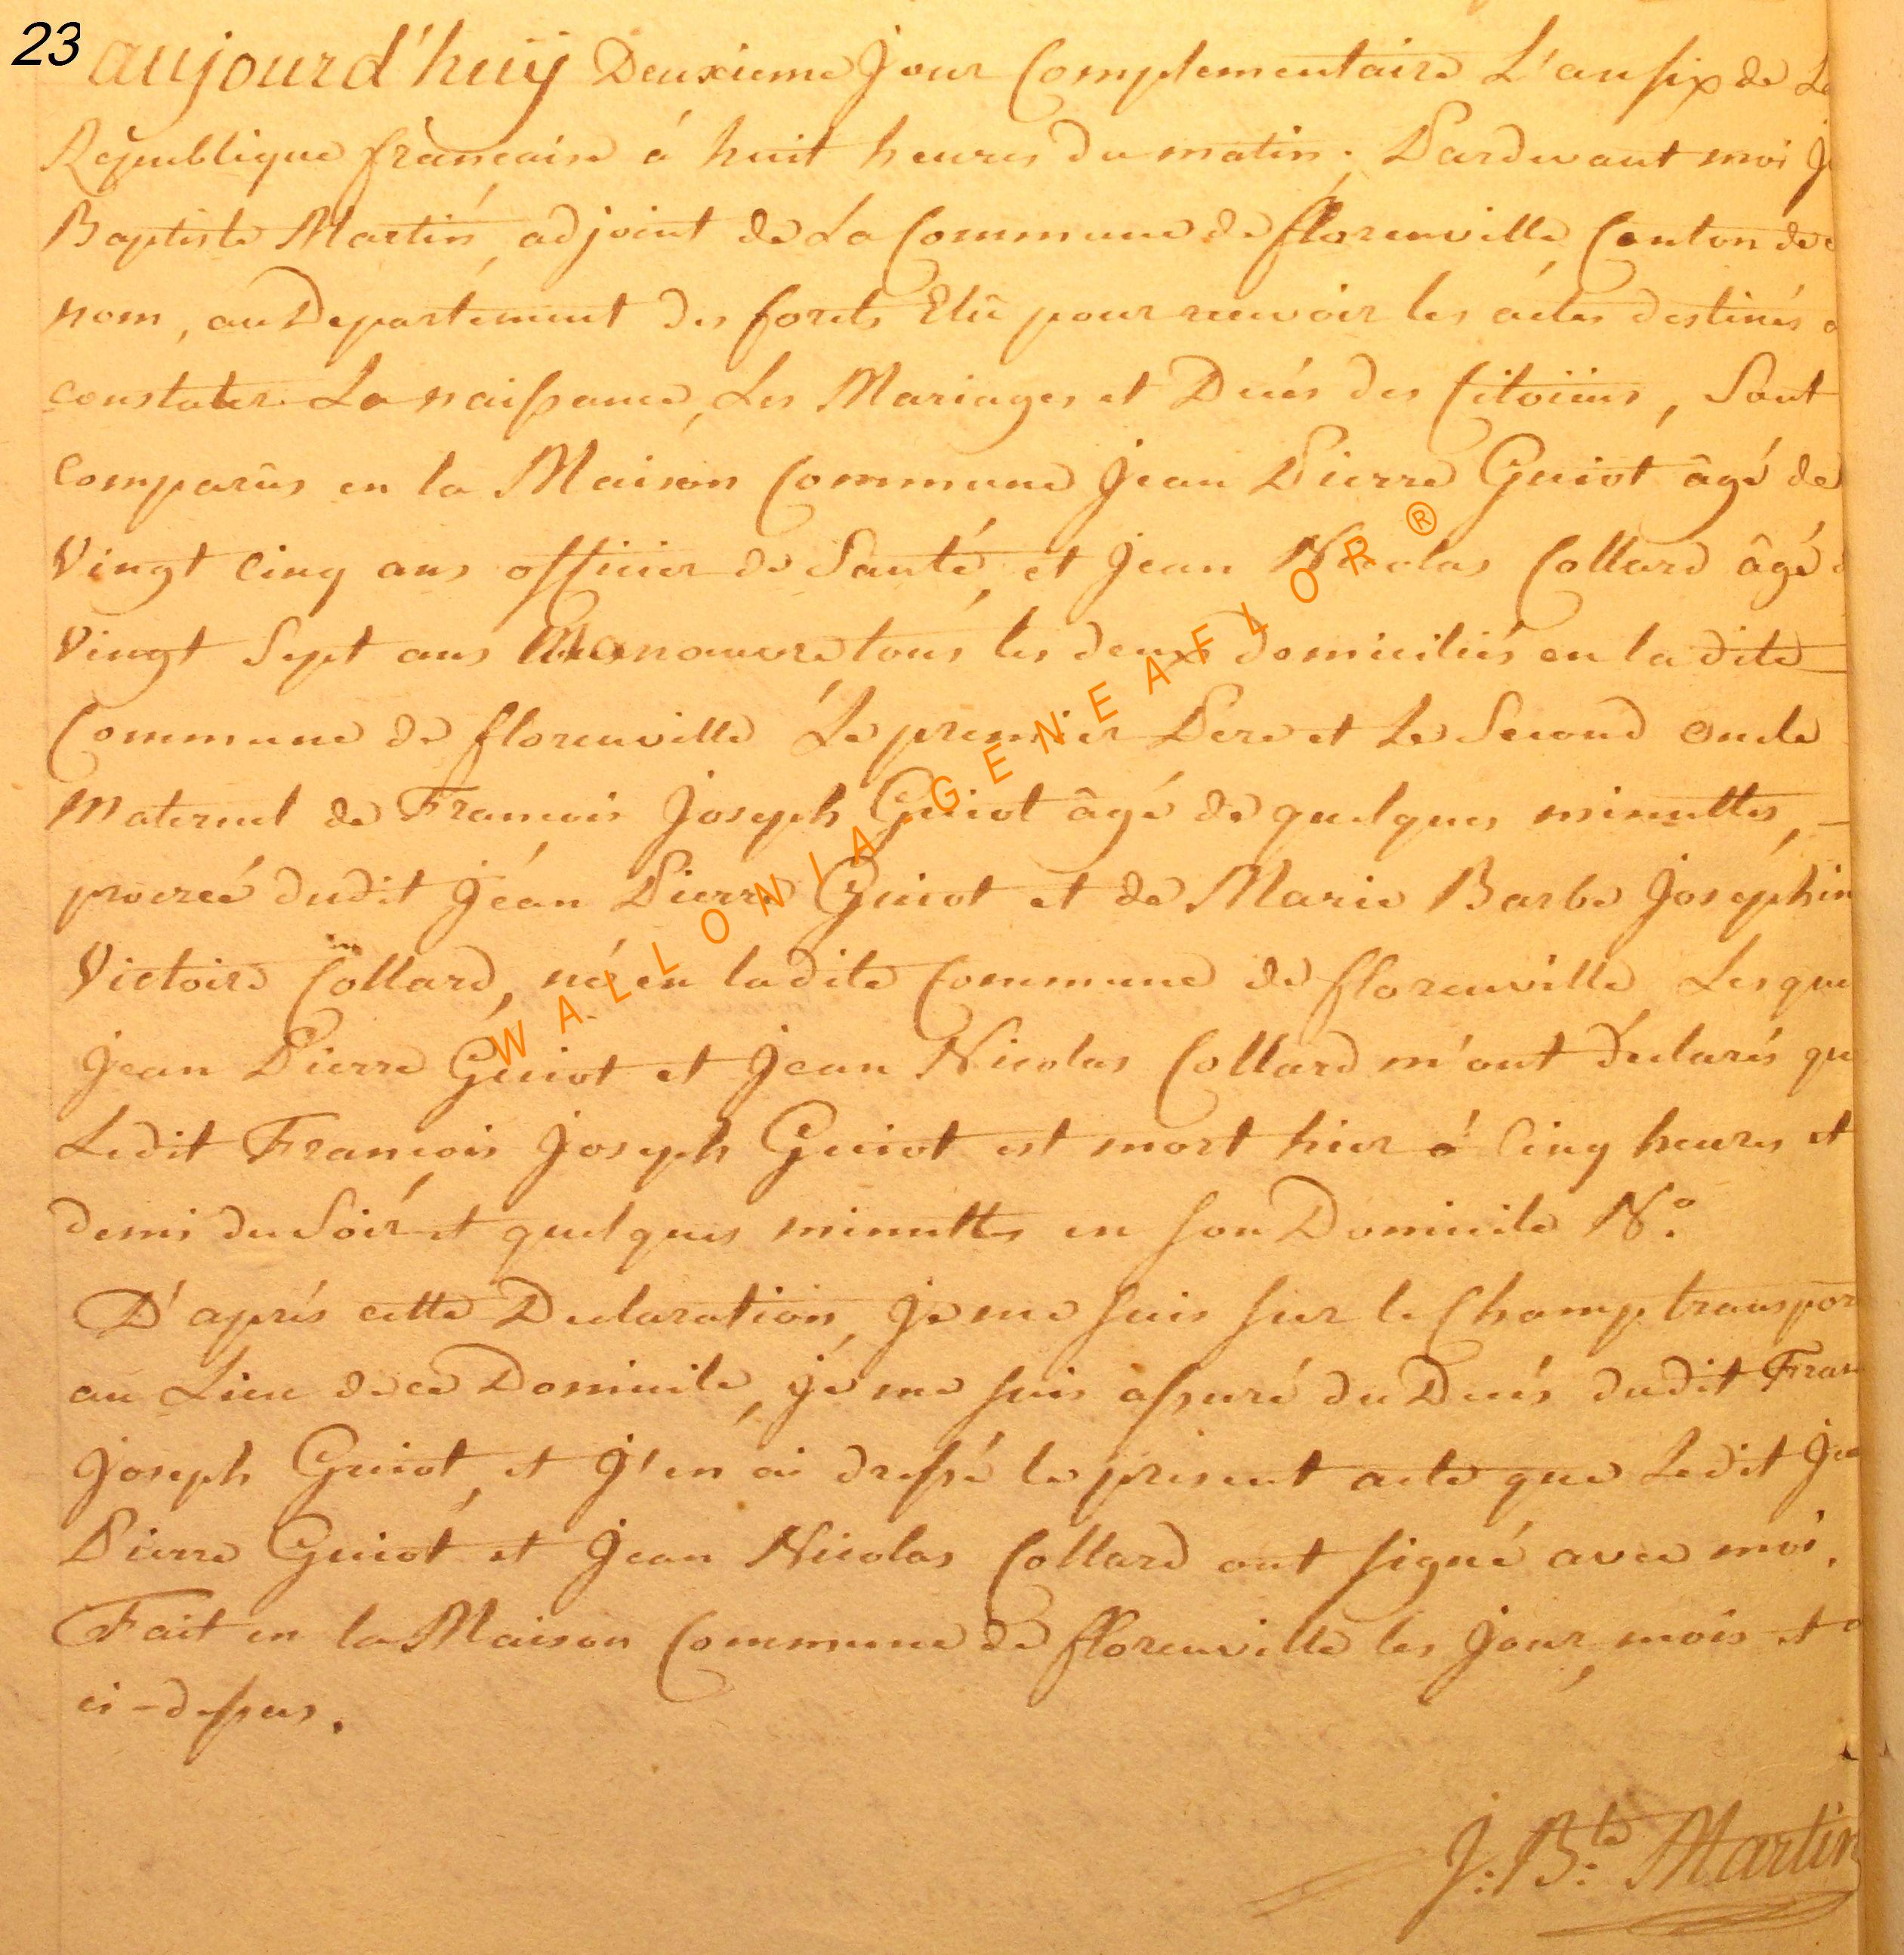 23 aujourd'huÿ Deuxieme Jour Complementaire L'an six de La
Republique francaise á huit heures du matin, Pardevant moi J
Baptiste Martin, adjoint de La Commune de florenville, Canton de c
nom, au Departement des forets Elû pour recevoir les actes destinés a
constater La naissance, Les Mariages et Decés des Citoïens, Sont
Comparûs en la Maison Commune Jean Pierre Guiot âgé de
Vingt Cinq ans officier de Santé, et Jean Nicolas Collard âgé d
Vingt Sept ans Manouvre tous les deux domiciliés en la dite
Commune de florenville Le premier Pere et Le Second oncle
Maternel de Francois Joseph Guiot âgé de quelques minuttes, —
procreé dudit Jean Pierre Guiot et de Marie Barbe Josephin
Victoire Collard, né en ladite Commune de florenville Lesque
Jean Pierre Guiot et Jean Nicolas Collard m'ont déclarés qu
Ledit François Joseph Guiot est mort hier á Cinq heures et
demi du Soir et quelques minuttes en son Domicile N.o
D'aprés cette Declaration, Je me suis sur le Champ transpor
au Lieu de ce Domicile, je me suis assuré du Decés dudit Fran
Joseph Guiot, et J'en ai dressé le present acte que Ledit Jea
Pierre Guiot et Jean Nicolas Collard ont signé avec moi.
Fait en la Maison Commune de florenville les Jour, mois et a
ci-dessus.
J: B:te Martin
WALLONIA GENEAFLOR ®